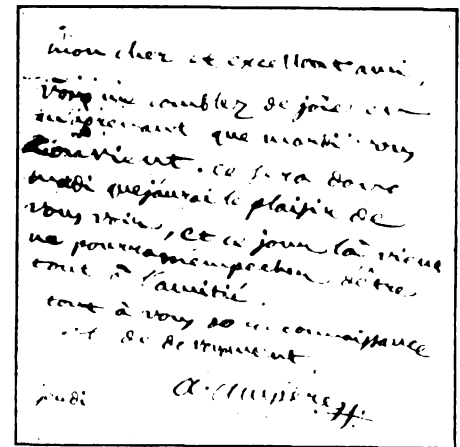 mon cher et excellent ami,
vous me comblez de joie en
m'apprenant que mardi vous
convient. ce sera donc
madi que j'aurai le plaisir de
vous voir, et ce jour là rien
ne pourra m'empecher d'être
tout à l'amitié.
tout à vous de connaissance
et de devoument
a. ampère
jeudi